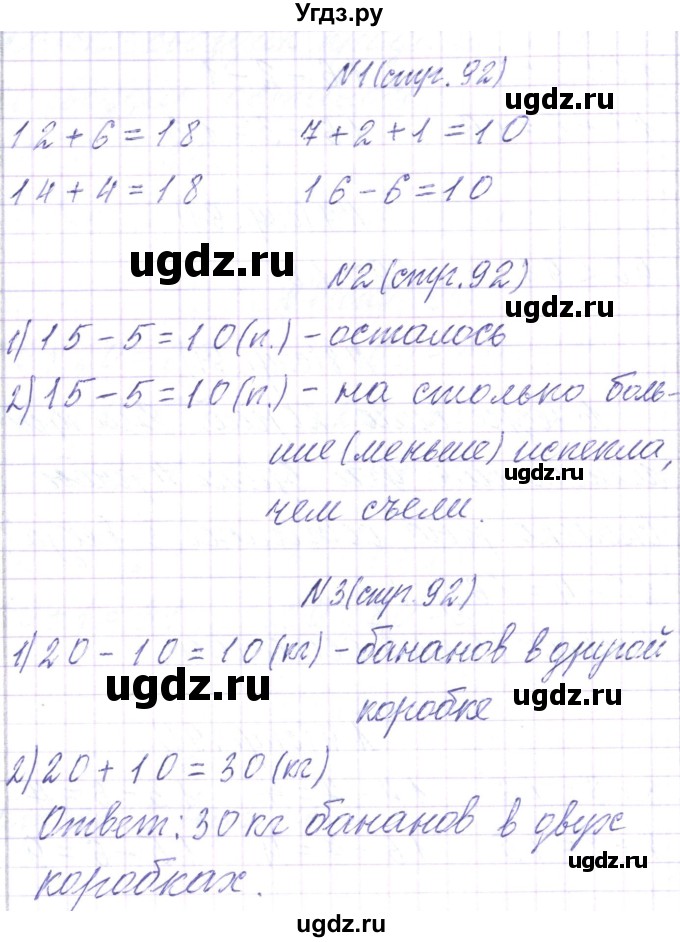 Угдз.ру
N1(стр. 92)
ugdz.ru
12+6=18 7+2+1=10
14+4=18 16-6=10
ugdz.ru
N2(стр.92)
ugdz.ru
1)15-5=10(п.) - осталось
2)15-5=10(п.) - на столько боль-
ше(меньше) испекла,
ugdz.ru
чем съели.
N3(стр. 92)
ugdz.ru
1)20-10=10(кг) - бананов в другой
ugdz.ru
коробке
ugdz.ru
2)20+10=30(кг)
Ответ: 30кг бананов в двух
ugdz.ru
коробках.
ugdz.ru